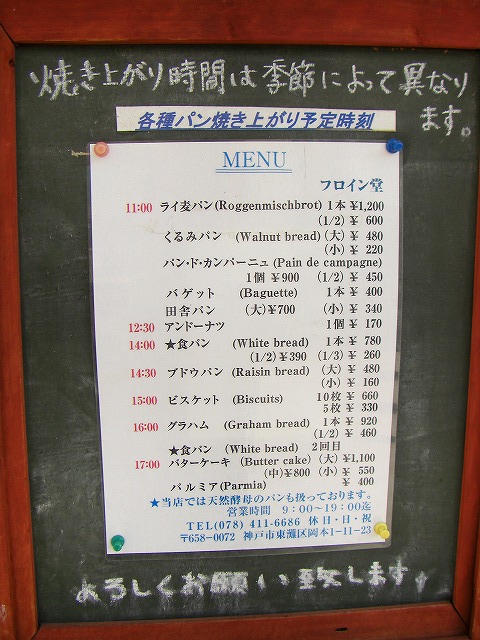 焼き上がり時間は季節によって異なり
ます。
各種パン焼き上がり予定時刻
MENU
フロイン堂
11:00 ライ麦パン(Roggenmischbrot) 1本 ¥1,200
(1/2) ¥ 600
くるみパン (Walnut bread) (大) ¥ 480
(小) ¥ 220
パン・ド・カンパーニュ(Pain de campagne)
1個 ¥900 (1/2) ¥ 450
バゲット (Baguette) 1本 ¥ 400
田舎パン (大)¥700 (小) ¥ 340
12:30 アンドーナツ 1個 ¥ 170
14:00 ★食パン (White bread) 1本 ¥ 780
(1/2)¥390 (1/3) ¥ 260
14:30 ブドウパン (Raisin bread) (大) ¥ 480
(小) ¥ 160
15:00 ビスケット (Biscuits) 10枚 ¥ 660
5枚 ¥ 330
16:00 グラハム (Graham bread) 1本 ¥ 920
(1/2) ¥ 460
★食パン (White bread) 2回目
17:00 バターケーキ (Butter cake) (大) ¥1,100
(中)¥800 (小) ¥ 550
パルミア(Parmia) ¥ 400
★当店では天然酵母のパンも扱っております。
営業時間 9:00～19:00迄
TEL(078) 411-6686 休日・日・祝
〒658-0072 神戸市東灘区岡本1-11-23
よろしくお願い致します。